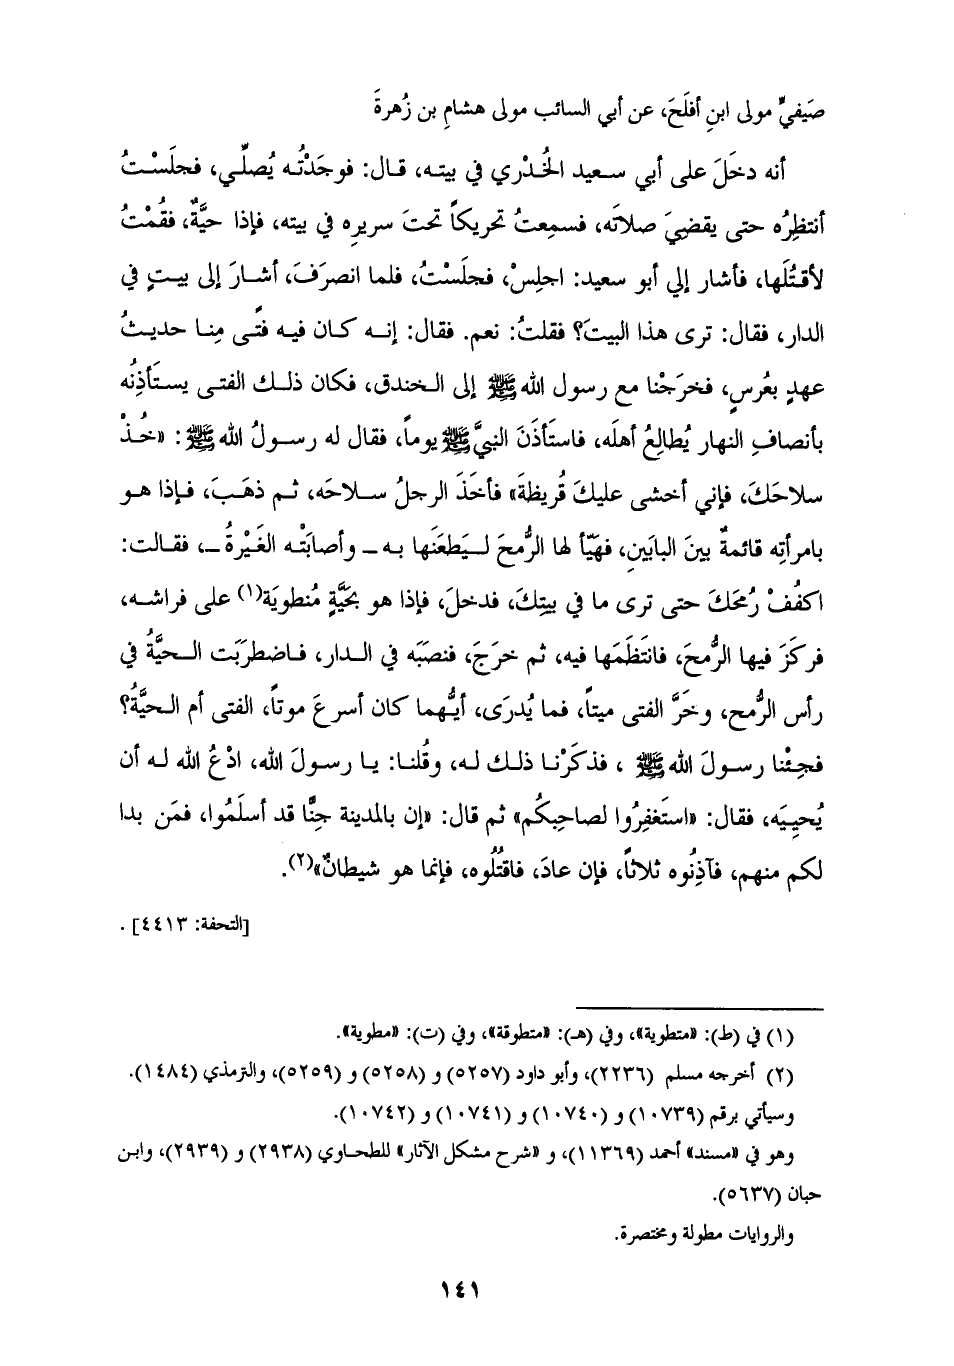 صَيفيٍّ مولى ابنِ أفلَحَ، عن أبي السائب مولى هشامِ بن زُهرةَ
أنه دخَلَ على أبي سعيد الخُدْري في بيته، قال: فوجَدْتُه يُصلِّي، فجلَسْتُ
أنتظِرُه حتى يقضِيَ صلاتَه، فسمِعتُ تحريكاً تحتَ سريرِه في بيته، فإذا حيَّةٌ، فقُمْتُ
لأقتُلَها، فأشار إلي أبو سعيد: اجلِسْ، فجلَسْتُ، فلما انصرَفَ، أشارَ إلى بيتٍ في
الدار، فقال: ترى هذا البيتَ؟ فقلتُ: نعم. فقال: إنه كان فيه فتًى مِنا حديثُ
عهدٍ بعُرسٍ، فخرَجْنا مع رسول الله ﷺ إلى الخندق، فكان ذلك الفتى يستأذِنُه
بأنصافِ النهار يُطالِعُ أهلَه، فاستَأذَنَ النبيَّ ﷺ يوماً، فقال له رسولُ الله ﷺ: «خُذْ
سلاحَكَ، فإني أخشى عليكَ قُريظةَ» فأخَذَ الرجلُ سلاحَه، ثم ذهَبَ، فإذا هو
بامرأتِه قائمةٌ بينَ البابَينِ، فهَيَّأ لها الرُّمحَ ليَطعَنَها به - وأصابَتْه الغَيْرةُ -، فقالت:
اكفُفْ رُمحَكَ حتى ترى ما في بيتِكَ، فدخلَ، فإذا هو بحَيَّةٍ مُنطوِيَة(١) على فراشه،
فركَزَ فيها الرُّمحَ، فانتَظَمَها فيه، ثم خرَجَ، فنصَبَه في الدار، فاضطرَبَت الحيَّةُ في
رأس الرُّمح، وخرَّ الفتى ميتاً، فما يُدرَى، أيُّهما كان أسرعَ موتاً، الفتى أم الحيَّةُ؟
فجِئْنا رسولَ الله ﷺ ، فذكَرْنا ذلك له، وقُلنا: يا رسولَ الله، ادْعُ الله له أن
يُحيِيَه، فقال: «استَغفِرُوا لصاحِبكُم» ثم قال: «إن بالمدينة جِنًّا قد أسلَمُوا، فمَن بدا
لكم منهم، فآذِنُوه ثلاثاً، فإن عادَ، فاقتُلُوه، فإنما هو شيطانٌ»(٢).
[التحفة: ٤٤١٣] .
(١) في (ط): «متطوية»، وفي (هـ): «متطوقة»، وفي (ت): «مطوية».
(٢) أخرجه مسلم (٢٢٣٦)، وأبو داود (٥٢٥٧) و (٥٢٥٨) و (٥٢٥٩)، والترمذي (١٤٨٤).
وسيأتي برقم (١٠٧٣٩) و (١٠٧٤٠) و (١٠٧٤١) و (١٠٧٤٢).
وهو في «مسند» أحمد (١١٣٦٩)، و «شرح مشكل الآثار» للطحاوي (٢٩٣٨) و (٢٩٣٩)، وابن
حبان (٥٦٣٧).
والروايات مطولة ومختصرة.
١٤١